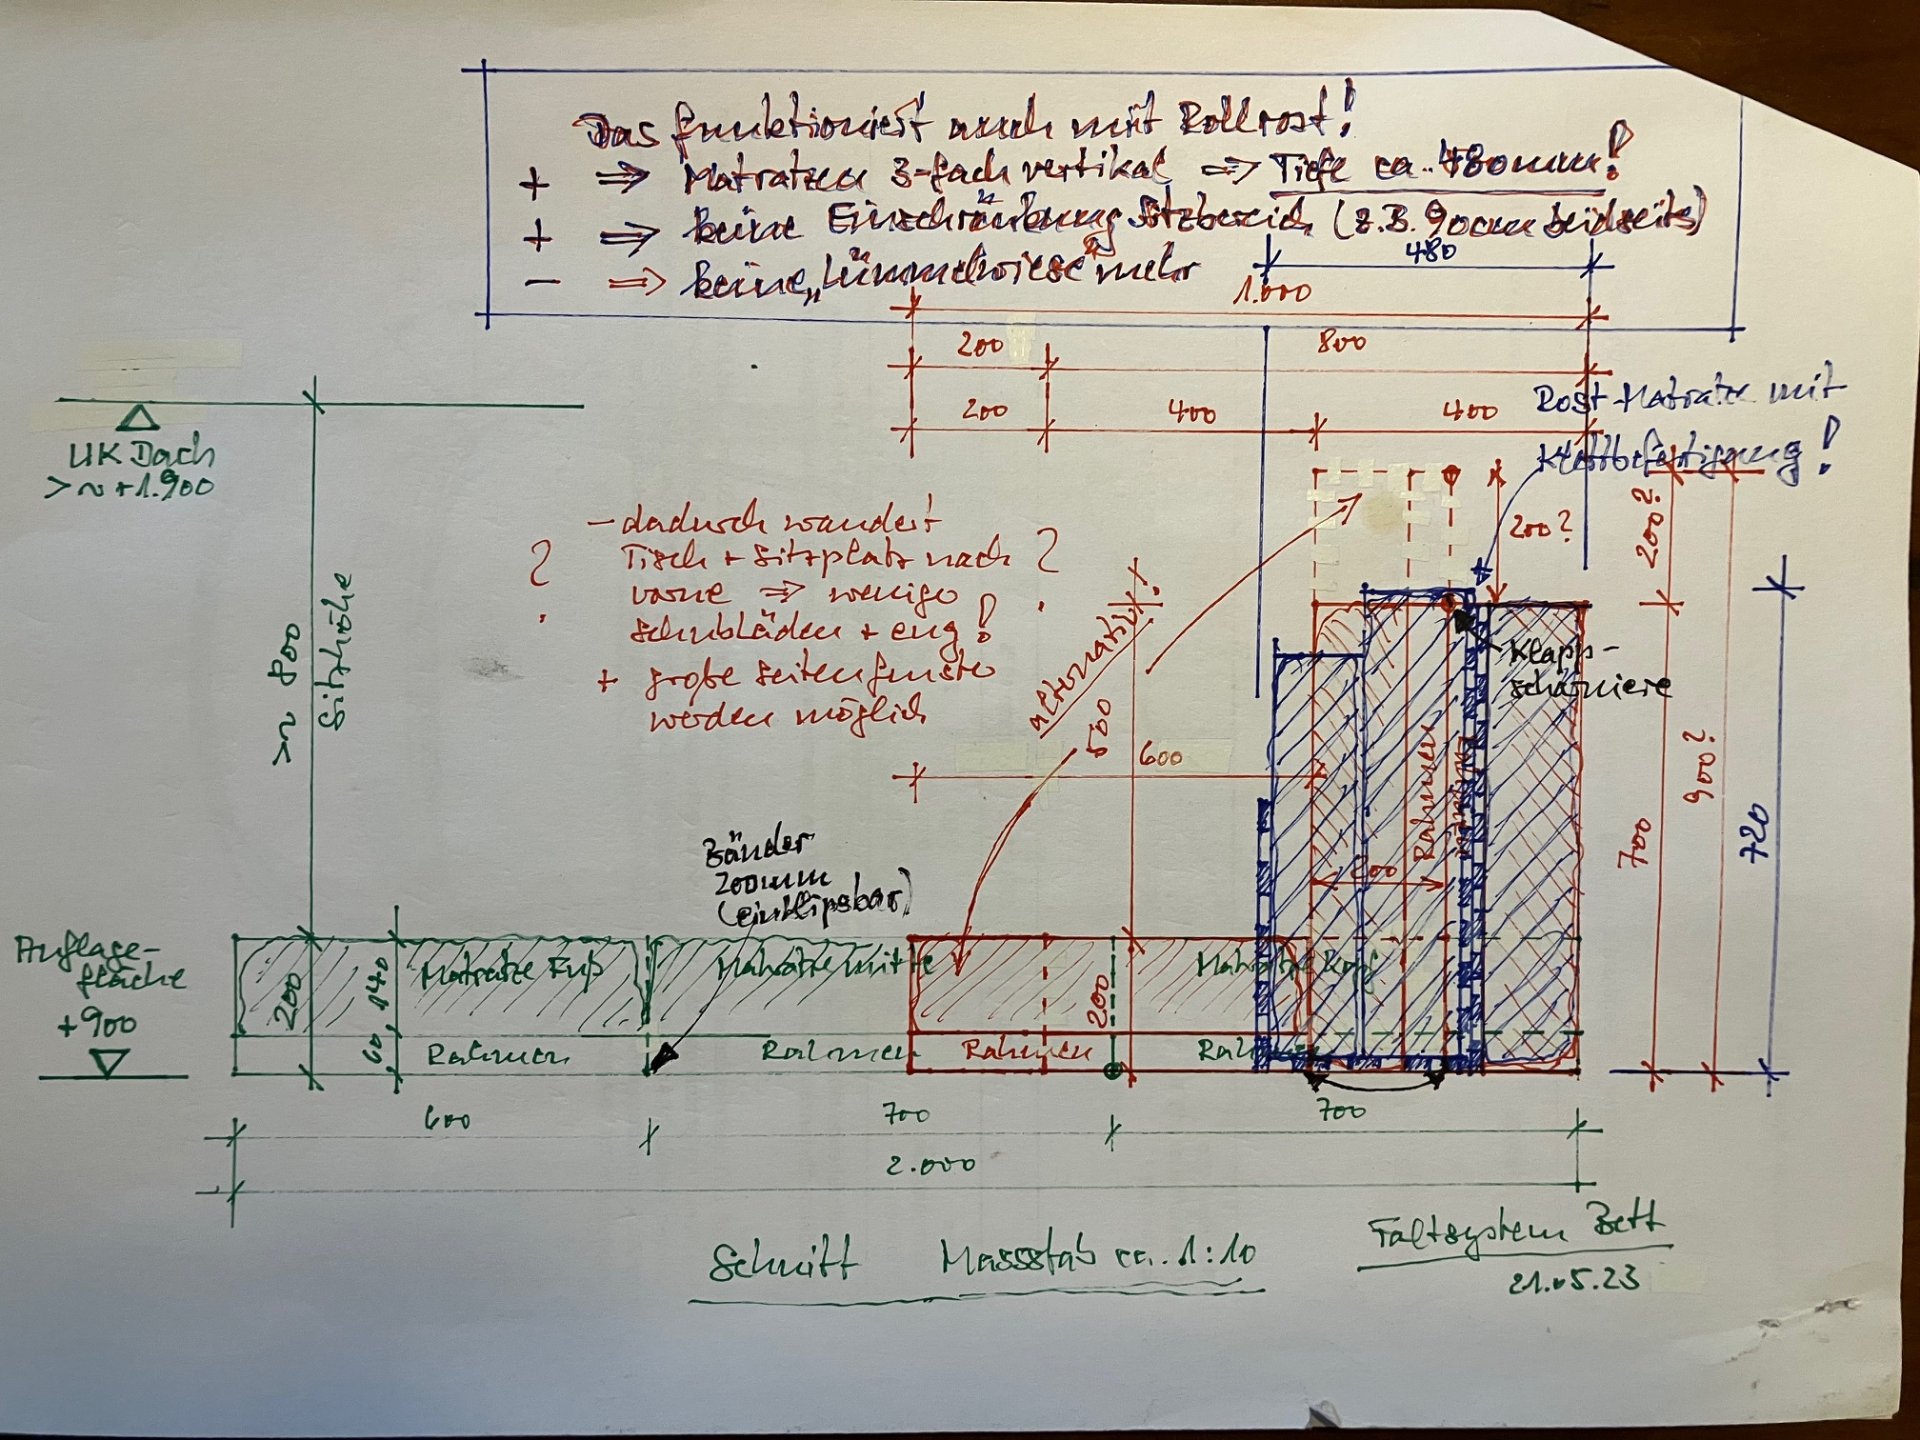 Das funktioniert auch mit Rollrost!
+ ⇒ Matratzen 3-fach vertikal ⇒ Tiefe ca. 480mm!
+ ⇒ keine Einschränkung Sitzbereich (z.B. 90cm beidseits)
− ⇒ keine „Lümmelwiese" mehr
480
1.000
200 800
200 400 400
Rost-Matratze mit
Klettbefestigung!
UK Dach
>~ +1.900
>~ 800
Sitzhöhe
- dadurch wandert
Tisch + Sitzplatz nach
vorne ⇒ wenige
Schubläden + eng!
+ große Seitenfenster
werden möglich
? ?
alternativ!
500
600
200?
200?
900?
700
720
Klapp-
scharniere
Rahmen
200
Bänder
200mm
(einklipsbar)
Auflage-
fläche
+900
200
140
60
Matratze Fuß
Matratze Mitte
Matratze Kopf
200
Rahmen
Rahmen
Rahmen
600 700 700
2.000
Schnitt Massstab ca. 1:10
Faltsystem Bett
21.05.23